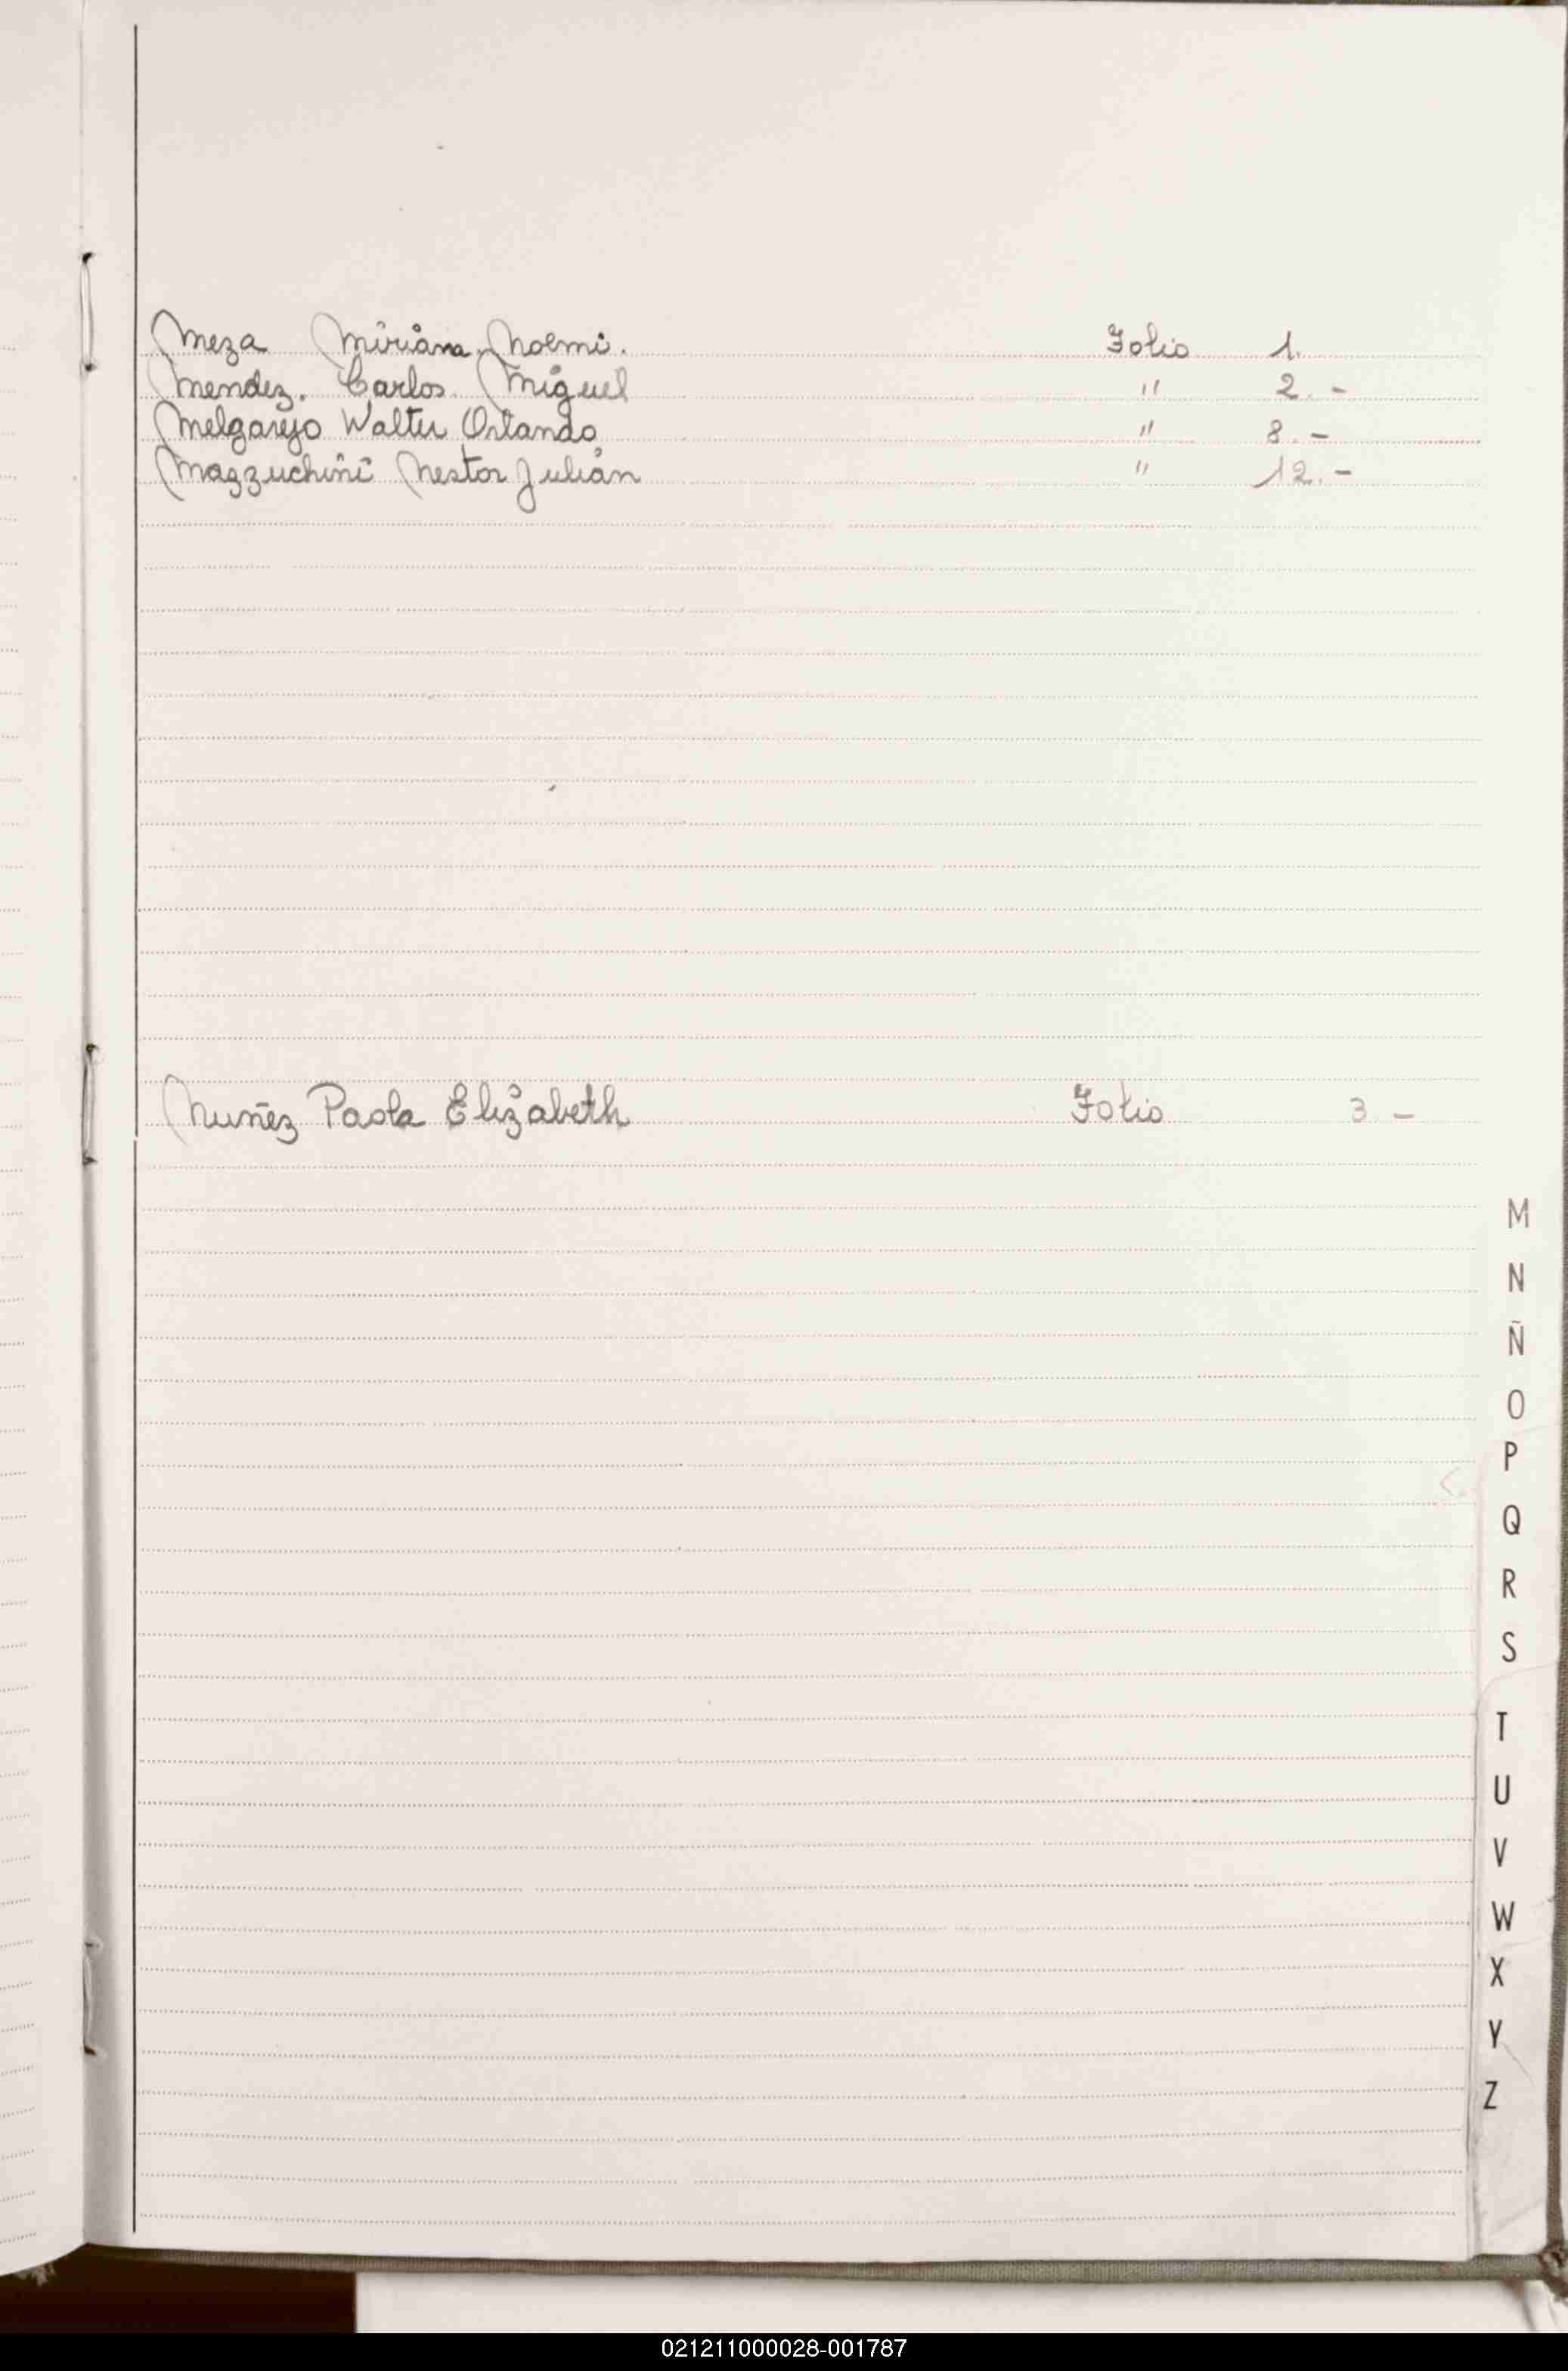 Meza Miriana Noemi. Folio 1.
Mendez. Carlos Miguel " 2. -
Melgarejo Walter Orlando " 8. -
Mazzuchini Nestor Julián " 12. -
Nuñez Paola Elizabeth Folio 3. -
M
N
Ñ
O
P
Q
R
S
T
U
V
W
X
Y
Z
021211000028-001787